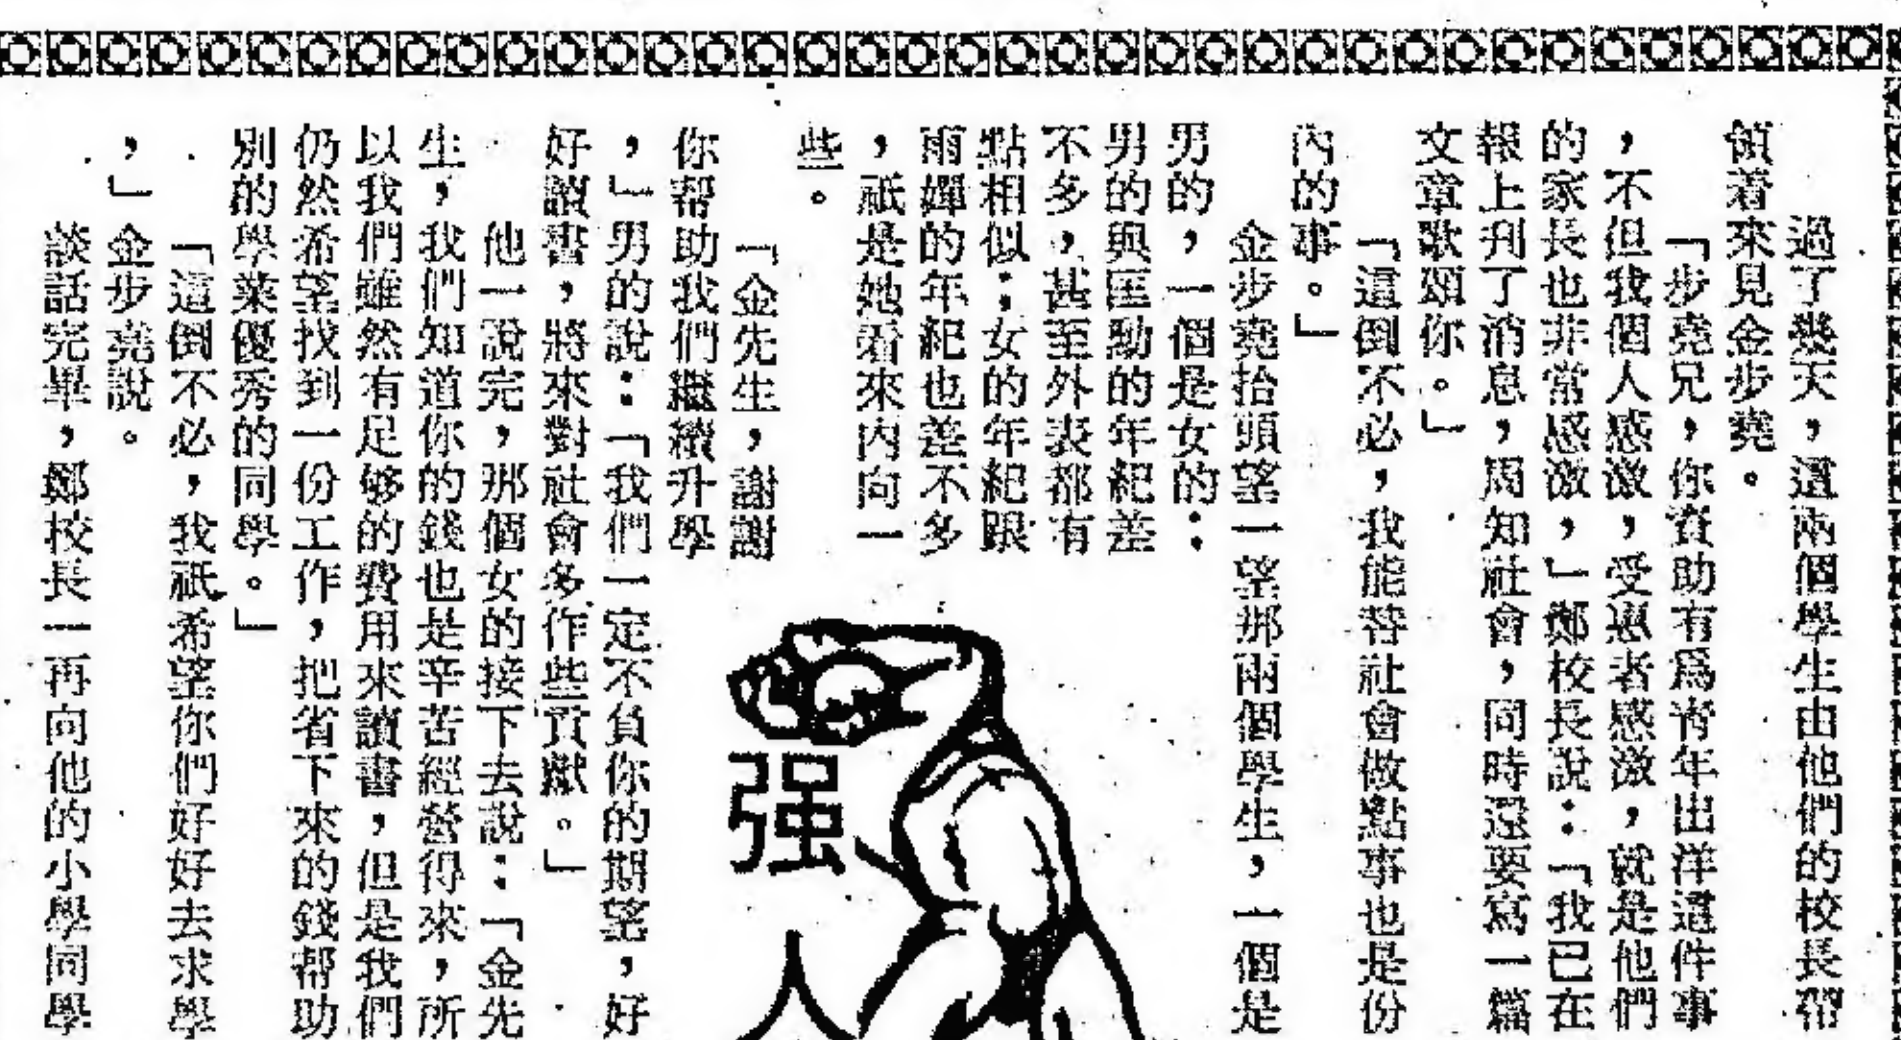 過了幾天，這兩個學生由他們的校長帶
領着來見金步堯。
「步堯兄，你資助有爲青年出洋這件事
，不但我個人感激，受惠者感激，就是他們
的家長也非常感激，」鄭校長說：「我已在
報上刋了消息，周知社會，同時還要寫一篇
文章歌頌你。」
「這倒不必，我能替社會做點事也是份
內的事。」
金步堯抬頭望一望那兩個學生，一個是
男的，一個是女的：
男的與匡勳的年紀差
不多，甚至外表都有
點相似；女的年紀跟
雨嬋的年紀也差不多
，祇是她看來內向一
些。
「金先生，謝謝
你帮助我們繼續升學
，」男的說：「我們一定不負你的期望，好
好讀書，將來對社會多作些貢獻。」
他一說完，那個女的接下去說：「金先
生，我們知道你的錢也是辛苦經營得來，所
以我們雖然有足够的費用來讀書，但是我們
仍然希望找到一份工作，把省下來的錢帮助
別的學業優秀的同學。」
「這倒不必，我祇希望你們好好去求學
，」金步堯說。
談話完畢，鄭校長一再向他的小學同學
强
人